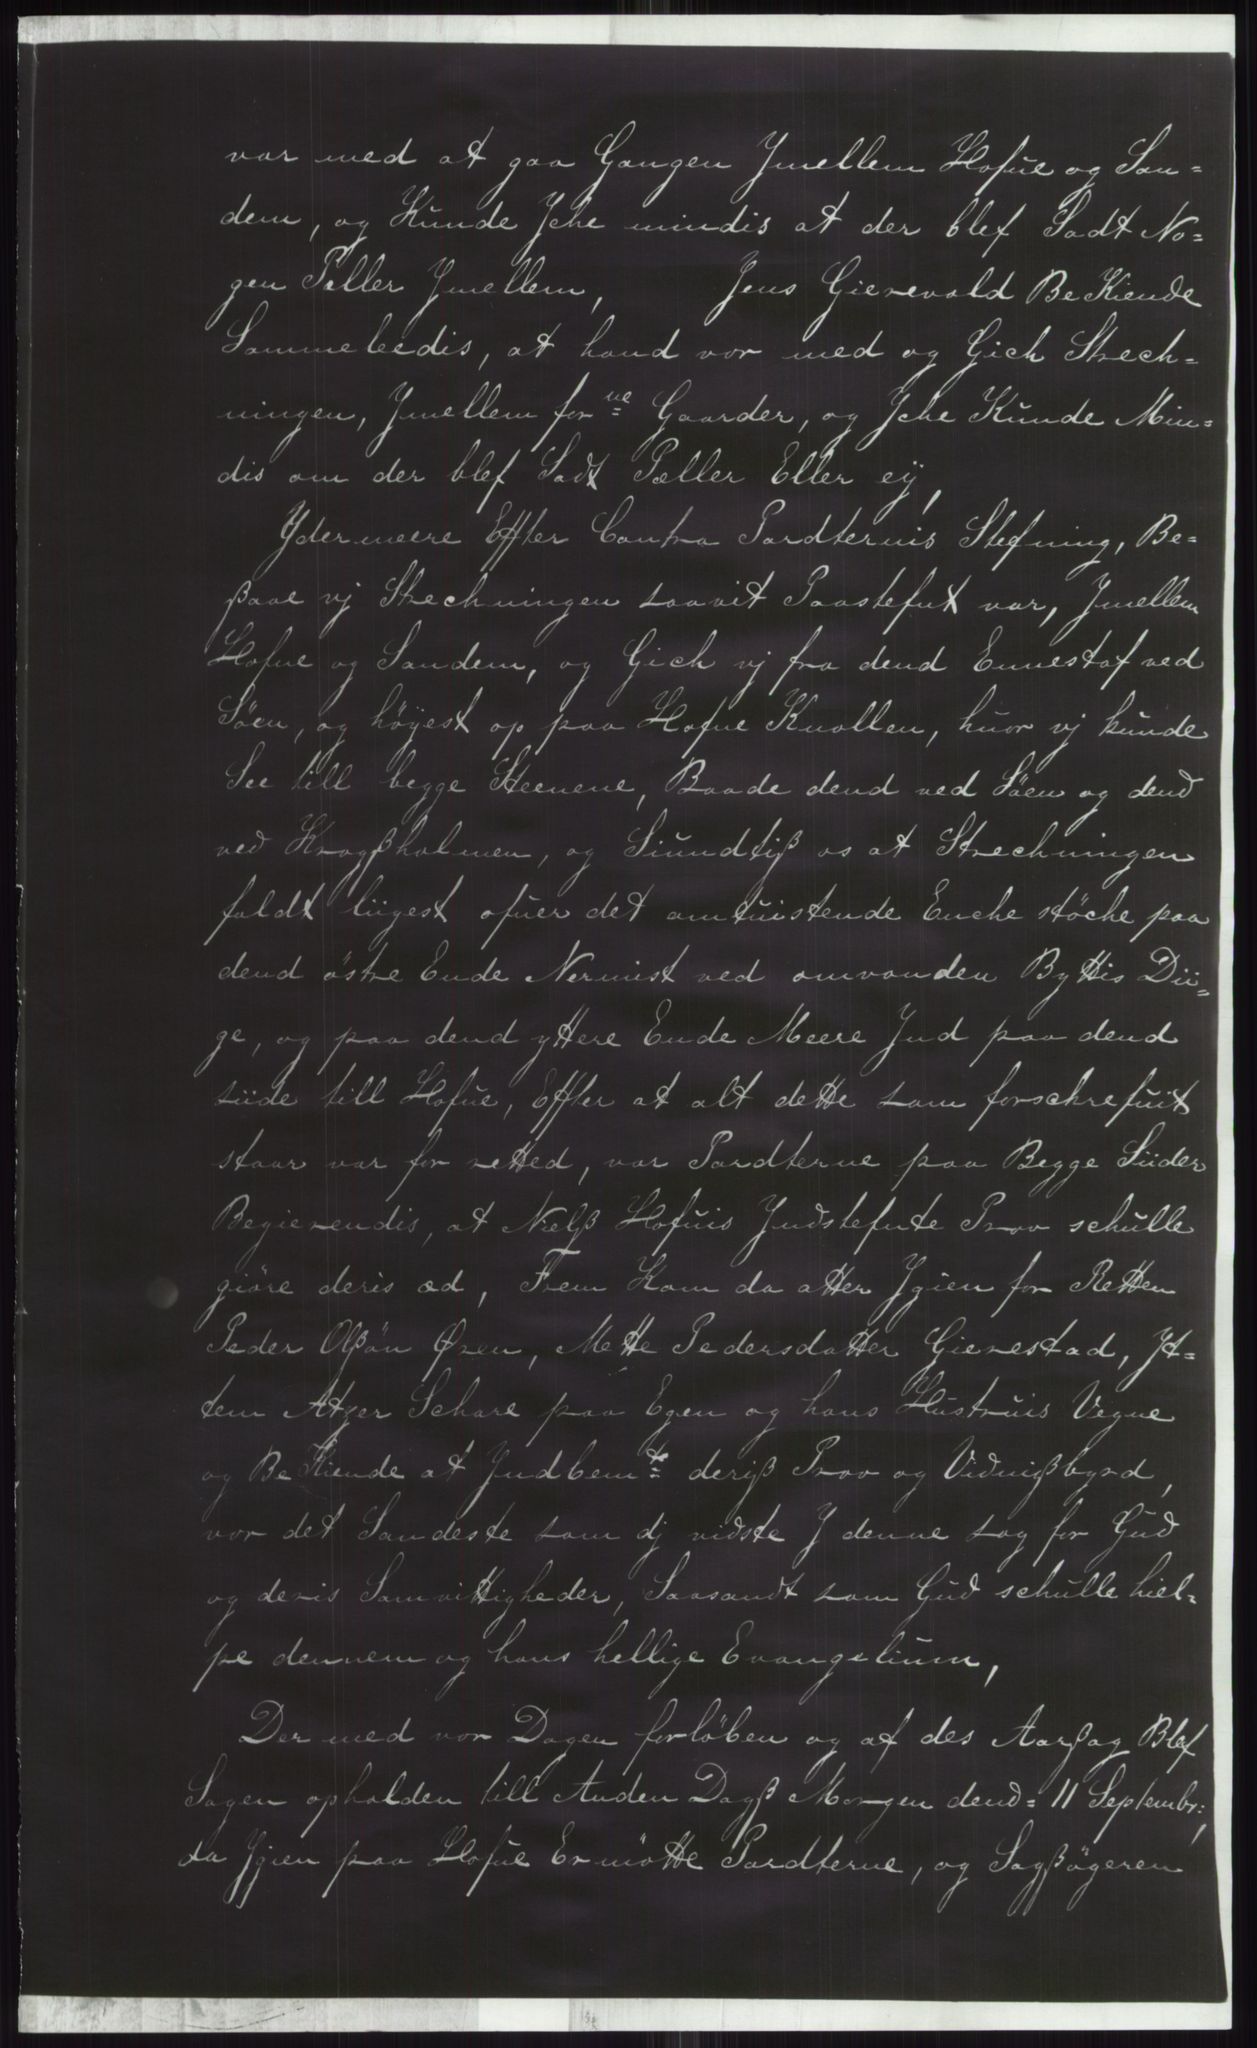 var med at gaa Gangen Jmellem Hofue og San=
dem, og Kunde Jche mindis at der blef Sadt No=
gen Pæller Jmellem,   Jens Gierevald BeKiende
Sammeleedis, at hand var med og Gich Strech=
ningen, Jmellem forne Gaarder, og Jche Kunde Min=
dis om der blef Sadt Pæller Eller ej,
Ydermeere Effter Contra Pardternis Stefning, Be=
ßaae vj Strechningen saavit Paastefnt var, Jmellem
Hofue og Sandem, og Gich vj fra dend Ennestaf ved
Söen, og höyest op paa Hofue Knollen, huor vj kunde
See till begge Steenene, Baade dend ved Söen og dend
ved Kragßholmen, og Siundtiß os at Strechningen
faldt liigest ofuer det omtuistende Enche stöche paa
dend östre Ende Nermist ved omvanden Byttis Dii=
ge, og paa dend yttere Ende Meere Jnd paa dend
siide till Hofue, Effter at alt dette som forschrefuit
staar var for retted, var Pardterne paa Begge Siider
Begierendis, at Nielß Hofuis Jndstefnte Prov schulle
giöre deris æd, Frem Kom da atter Jgien for Retten
Peder Olßön Øren, Mette Pedersdatter Gierestad, Jt=
tem Atzer Schare paa Egen og hans Hustruis Vegne
og BeKiende at Jndbemte deriß Prov og Vidnißbyrd,
var det Sandeste som dj vidste J denne sag for Gud
og deris Samvittigheder, Saasandt som Gud schulle hiel=
pe dennem og hans hellige Evangelium,
Der med var Dagen forløben og af des Aarßag Blef
Sagen opholden till Anden Dagß Morgen dend= 11 Septembr:,
da Jgien paa Hofue Er mötte Pardterne, og Sagßögeren